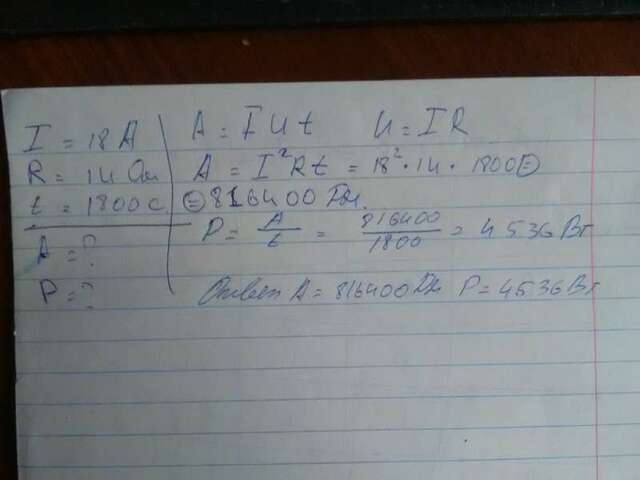 I = 18 А
R = 14 Ом
t = 1800 с.
A = ?
P = ?
A = IUt U = IR
A = I²Rt = 18² · 14 · 1800 =
= 816400 Дж.
P = A/t = 816400/1800 = 4536 Вт
Ответ A = 816400 Дж P = 4536 Вт